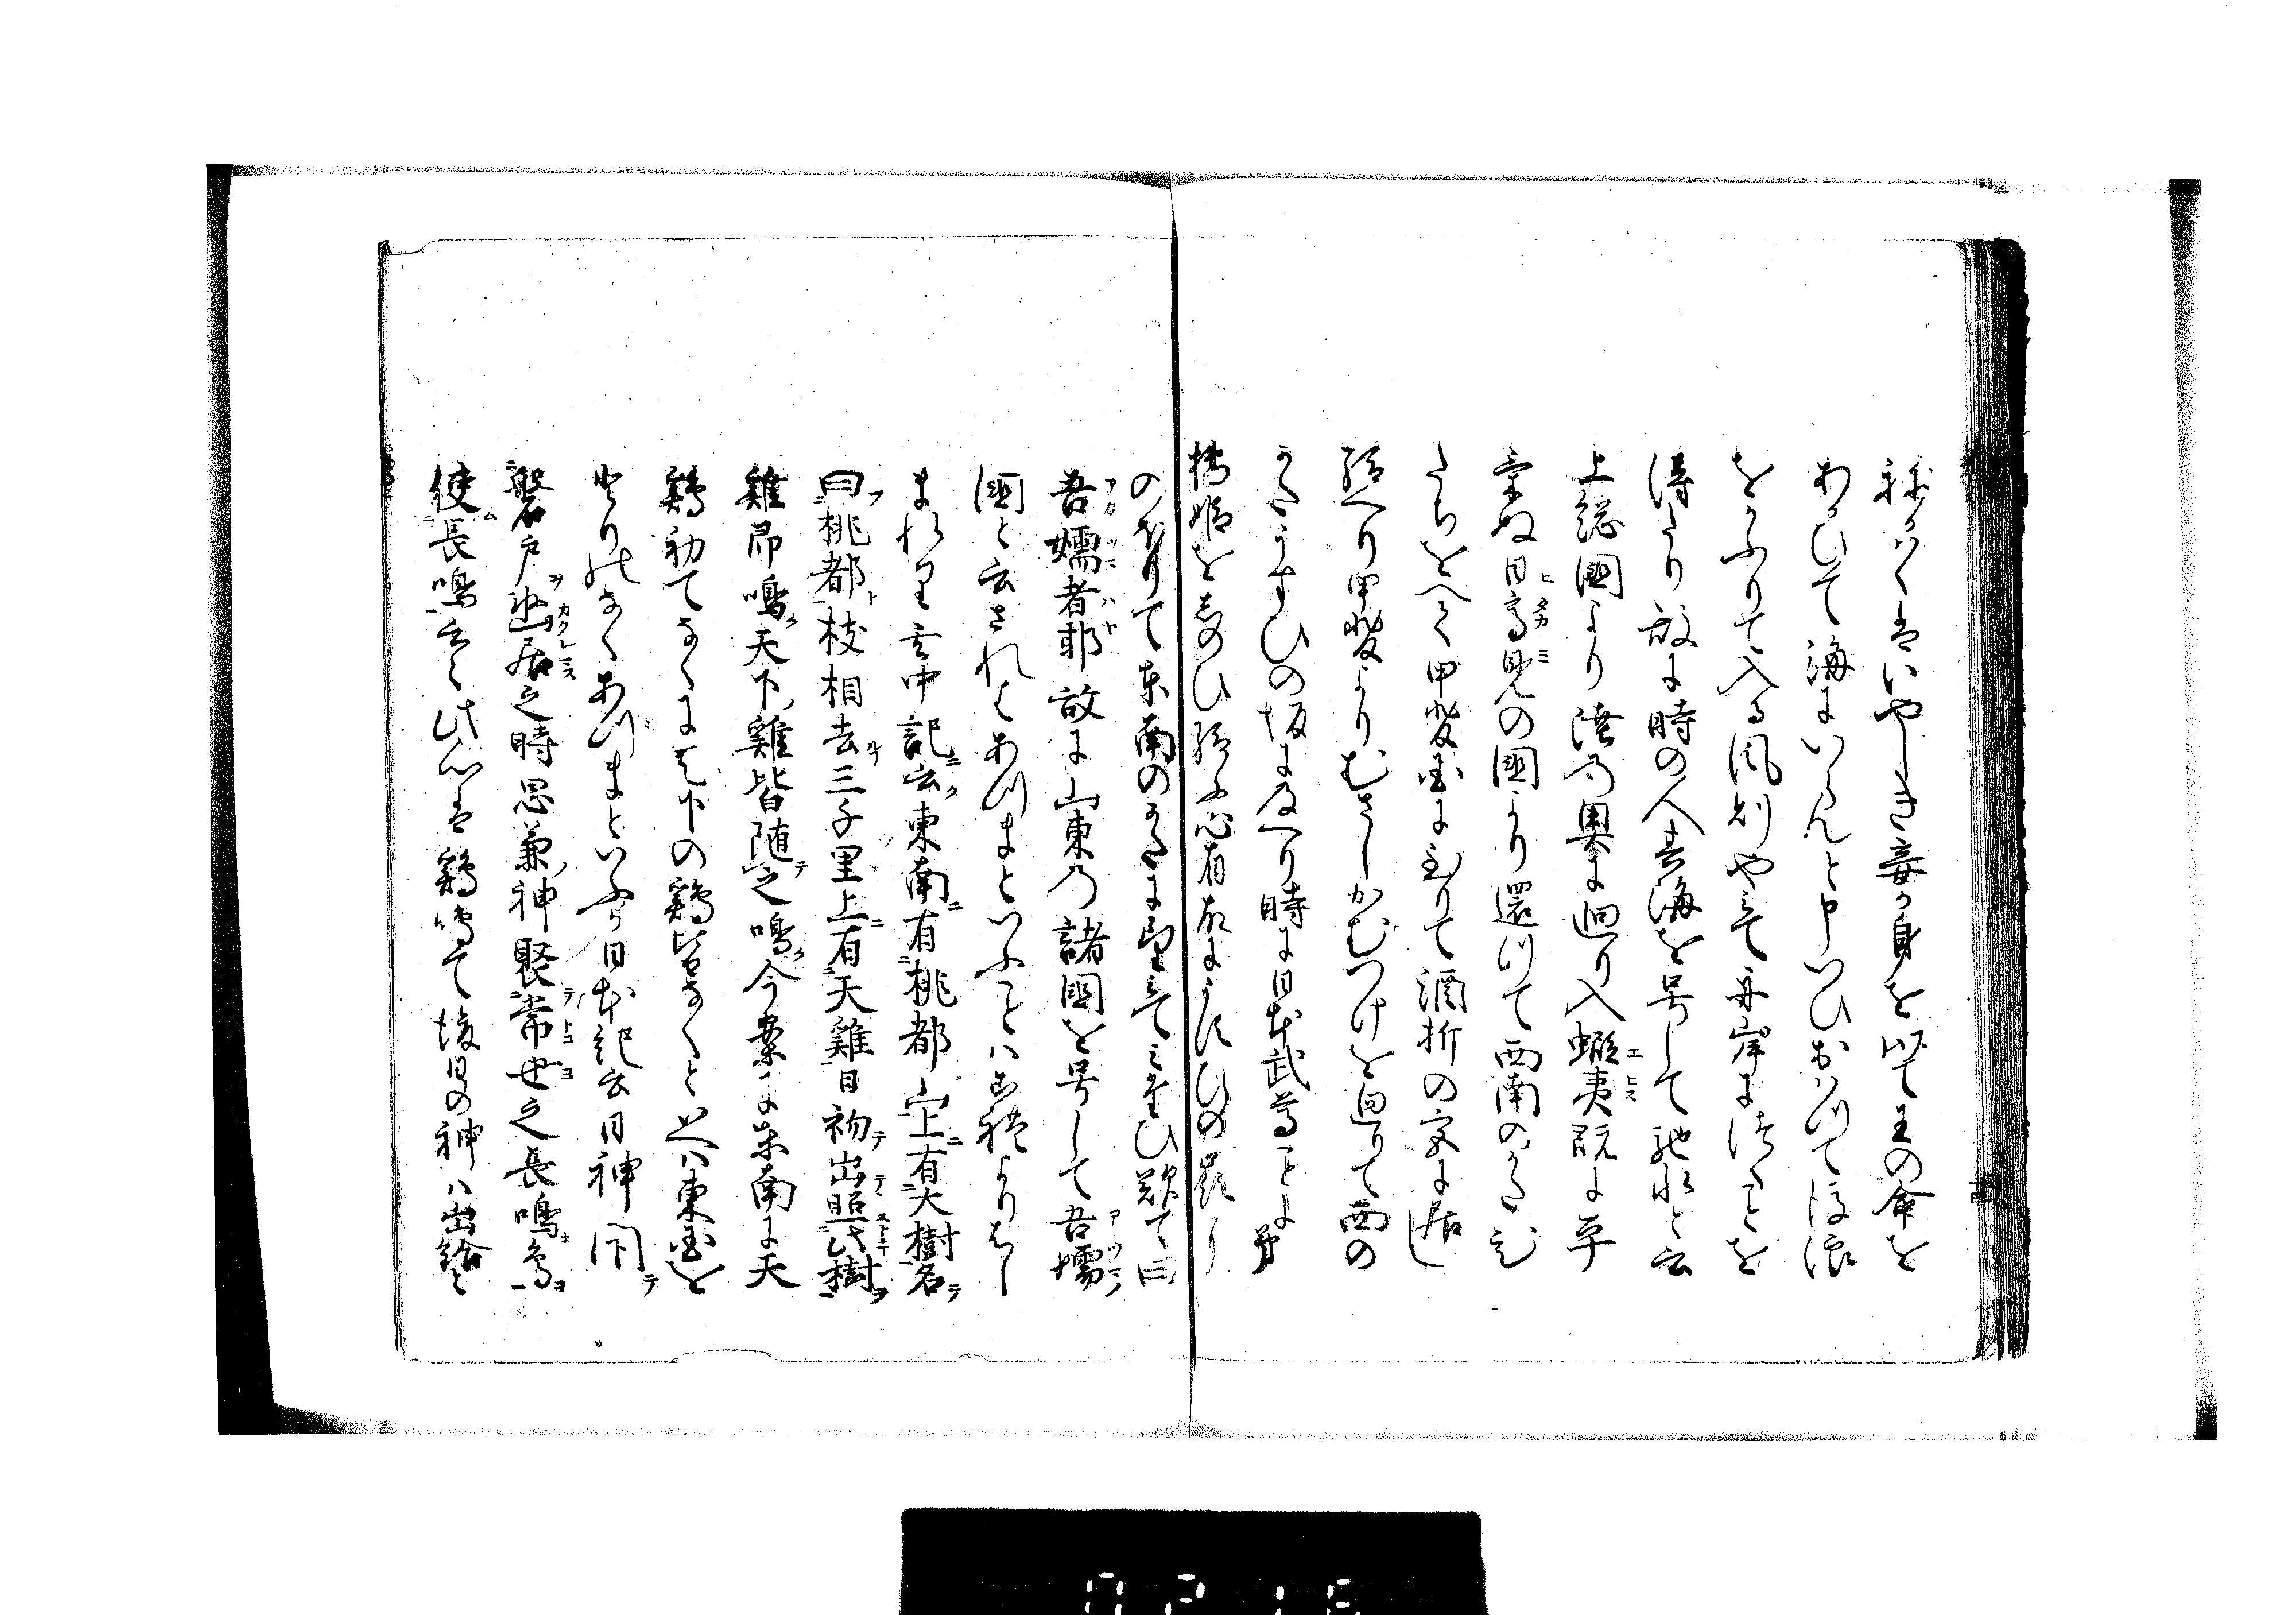 ねかはくはいやしき妾か身を以て王の命を
あかひて海にいらんと申つひにおはつて後浪
をかふりて入る風則やみて舟岸に付ことを
得たり故に時の人其海を号して馳水と云
上総國より陸乃奥に廻り入蝦夷既に平
け日高見の國より還つて西南のかたひ
たちをへて甲斐国に至りて酒折の宮に居し
給へり甲斐よりむさしかむつけを廻りて西の
かたうすひの坂に及へり時に日本武尊ことに弟
橘媛をしのひ給ふ心有故にうすひの嶺に
のほりて東南のかたに望みて三たひ歎て曰
吾嬬者耶故に山東乃諸國を号して吾嬬
國と云されはあつまといふことハ此よりはし
まれり玄中記云東南有桃都山上有大樹名
曰桃都枝相去三千里上有天雞日初出照此樹
雞即鳴天下雞皆随之鳴今案に東南に天
鶏初てなくに天下の鶏皆なくと云ハ東国を
とりかなくあつまといふか日本紀云日神閇
磐戸幽居之時思兼神聚常世之長鳴鳥
使長鳴云々此心は鶏鳴て後日の神ハ出給と